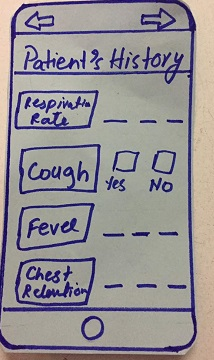 Patient's History
Respiration
Rate
Cough
Yes No
Fever
Chest